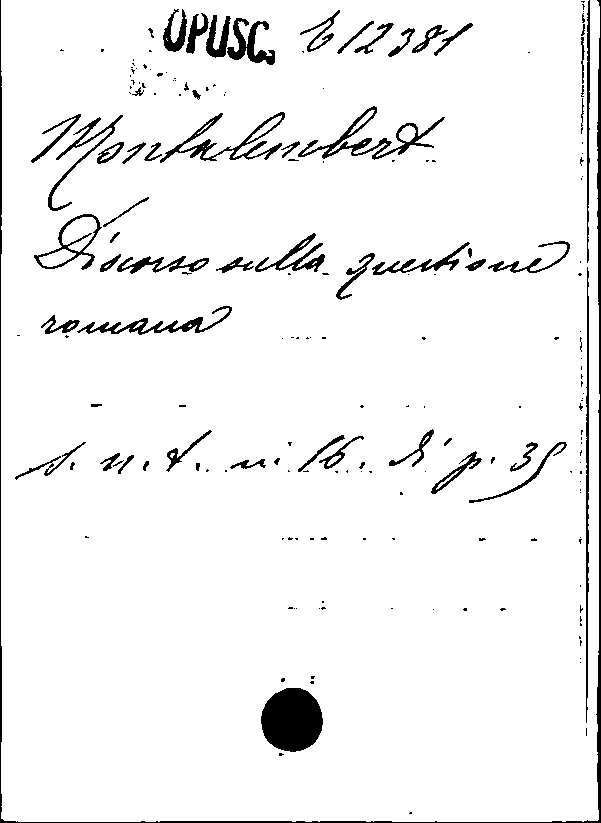 OPUSC. E 12381
Montalembert
Discorso sulla questione
romana
s. n. t. in 16. di p. 35